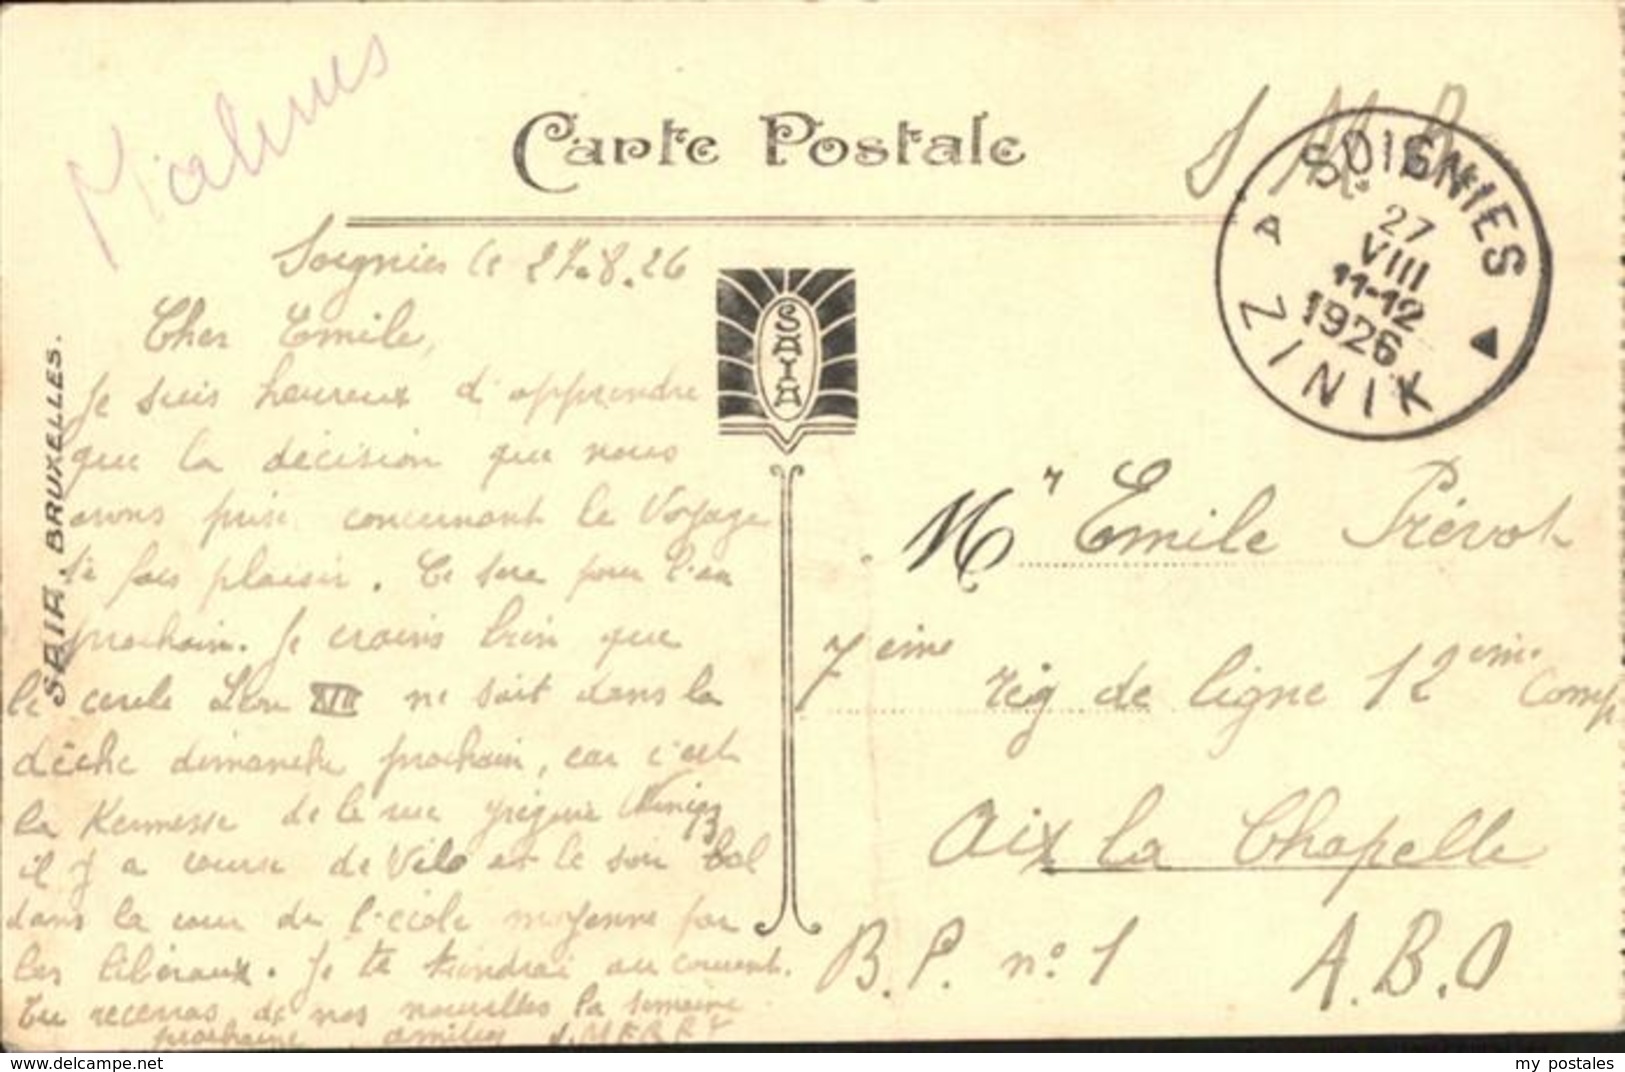 Carte Postale
S. M.
SOIGNIES
27
VIII
11-12
1926
A ZINIK
SAIA
SAIA. BRUXELLES.
Soignies le 27.8.26
Cher Emile,
Je suis heureux d'apprendre
que la décision que nous
avons prise concernant le Voyage
te fais plaisir. Ce sera pour l'an
prochain. Je crains bien que
le cercle Léon XIII ne soit dans la
dêche dimanche prochain, car c'est
la Kermesse de la rue grégoire Wincqz
il y a course de Vélo et le soir bal
dans la cour de l'école moyenne par
les libéraux. Je te tiendrai au courant.
Tu recevras de nos nouvelles la semaine
prochaine. amitiés
Mr Emile Prévot
7eime rég de ligne 12eme Comp
Aix la Chapelle
B.P. n° 1 A.B.O
my postales
Delcampe.net